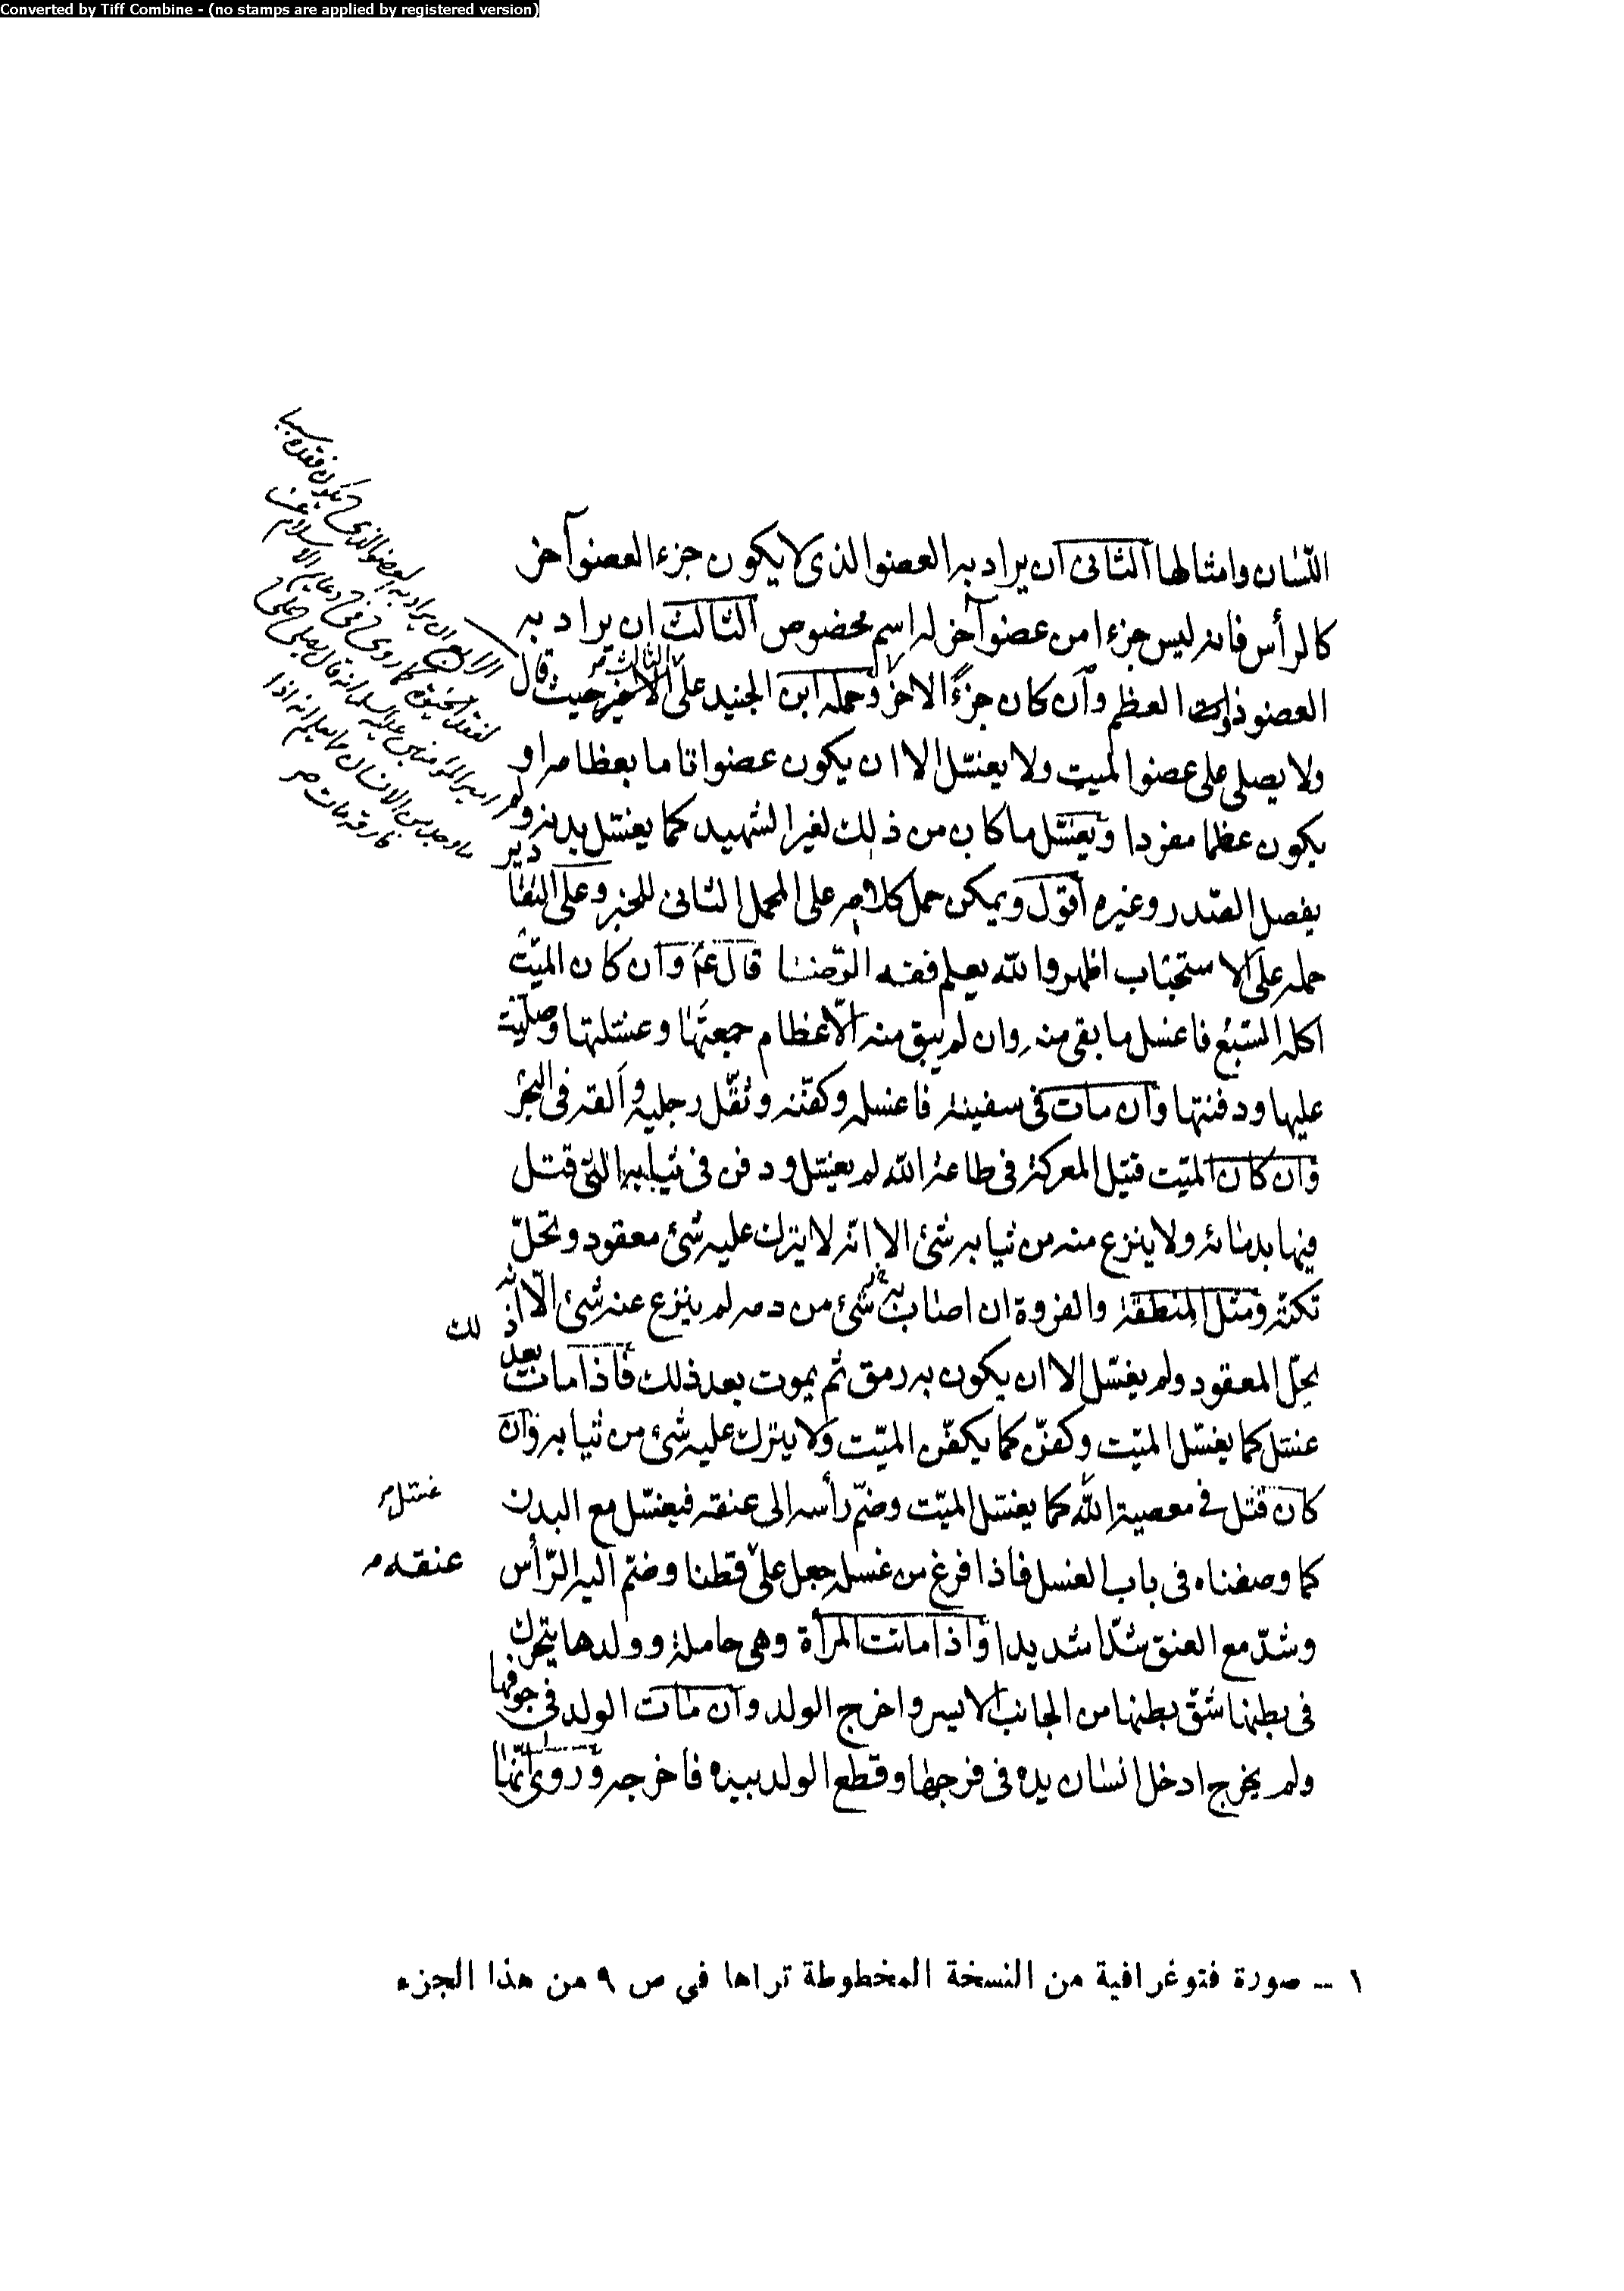 Converted by Tiff Combine - (no stamps are applied by registered version)
اللّسان وامثالها الثانى ان يراد به العضو الذى لا يكون جزءا لعضو آخر
كالرأس فانه ليس جزءا من عضو آخر له اسم مخصوص الثالث ان يراد به
العضو ذات العظم وان كان جزءً الاخر وحمله ابن الجنيد على الثالث حيث قال
ولا يصلى على عضو الميت ولا يغسّل الا ان يكون عضوا تاما بعظامه او
يكون عظما مفردا ويغسّل ما كان من ذلك لغير الشهيد كما يغسّل بدنه ولم
يفصل الصّدر وغيره اقول ويمكن حمل كلامه على المحمل الثانى للخبر وعلى التقادير
حمله على الاستحباب اظهر والله يعلم فقه الرّضا قال ع وان كان الميّت
اكله السّبع فاغسل ما بقى منه وان لم يبق منه الّا عظام جمعتها وغسّلتها وصلّيت
عليها ودفنتها وان مات فى سفينة فاغسله وكفّنه وثقّل رجليه والقه فى البحر
وان كان الميّت قتيل المعركة فى طاعة الله لم يغسّل ودفن فى ثيابه التى قتل
فيها بدمائه ولا ينزع منه من ثيابه شئ الا انّه لا يترك عليه شئ معقود وتحلّ
تكّته ومثل المنطقة والفروة ان اصاب شئ من دمه لم ينزع عنه شئ الّا انه
يحلّ المعقود ولم يغسّل الا ان يكون به رمق ثم يموت بعد ذلك فاذا مات بعد ذلك
غسّل كما يغسّل الميّت وكفّن كما يكفّن الميّت ولا يترك عليه شئ من ثيابه وان
كان قتل فى معصية الله كما يغسّل الميّت وضمّ رأسه الى عنقه فيغسّل مع البدن
غسّل
كما وصفناه فى باب الغسل فاذا فرغ من غسله جعل على قطنا وضمّ اليه الرّأس
عنقه
وشدّ مع العنق شدّا شديدا واذا ماتت المرأة وهى حاملة وولدها يتحرك
فى بطنها شقّ بطنها من الجانب الايسر واخرج الولد وان مات الولد فى جوفها
ولم يخرج ادخل انسان يده فى فرجها وقطع الولد بيده فاخرجه وروى انّها
الرابع ان يراد به العضو الذى يكون فقده سببا
لفقد الحيوة كما روى فى دعايم الاسلام عن
امير المؤمنين عليه السلم انه قال يصلى على
ما وجد من الانسان ما يعلم انه اذا
فارقه مات
١ ــ صورة فتوغرافية من النسخة المخطوطة تراها في ص ٩ من هذا الجزء